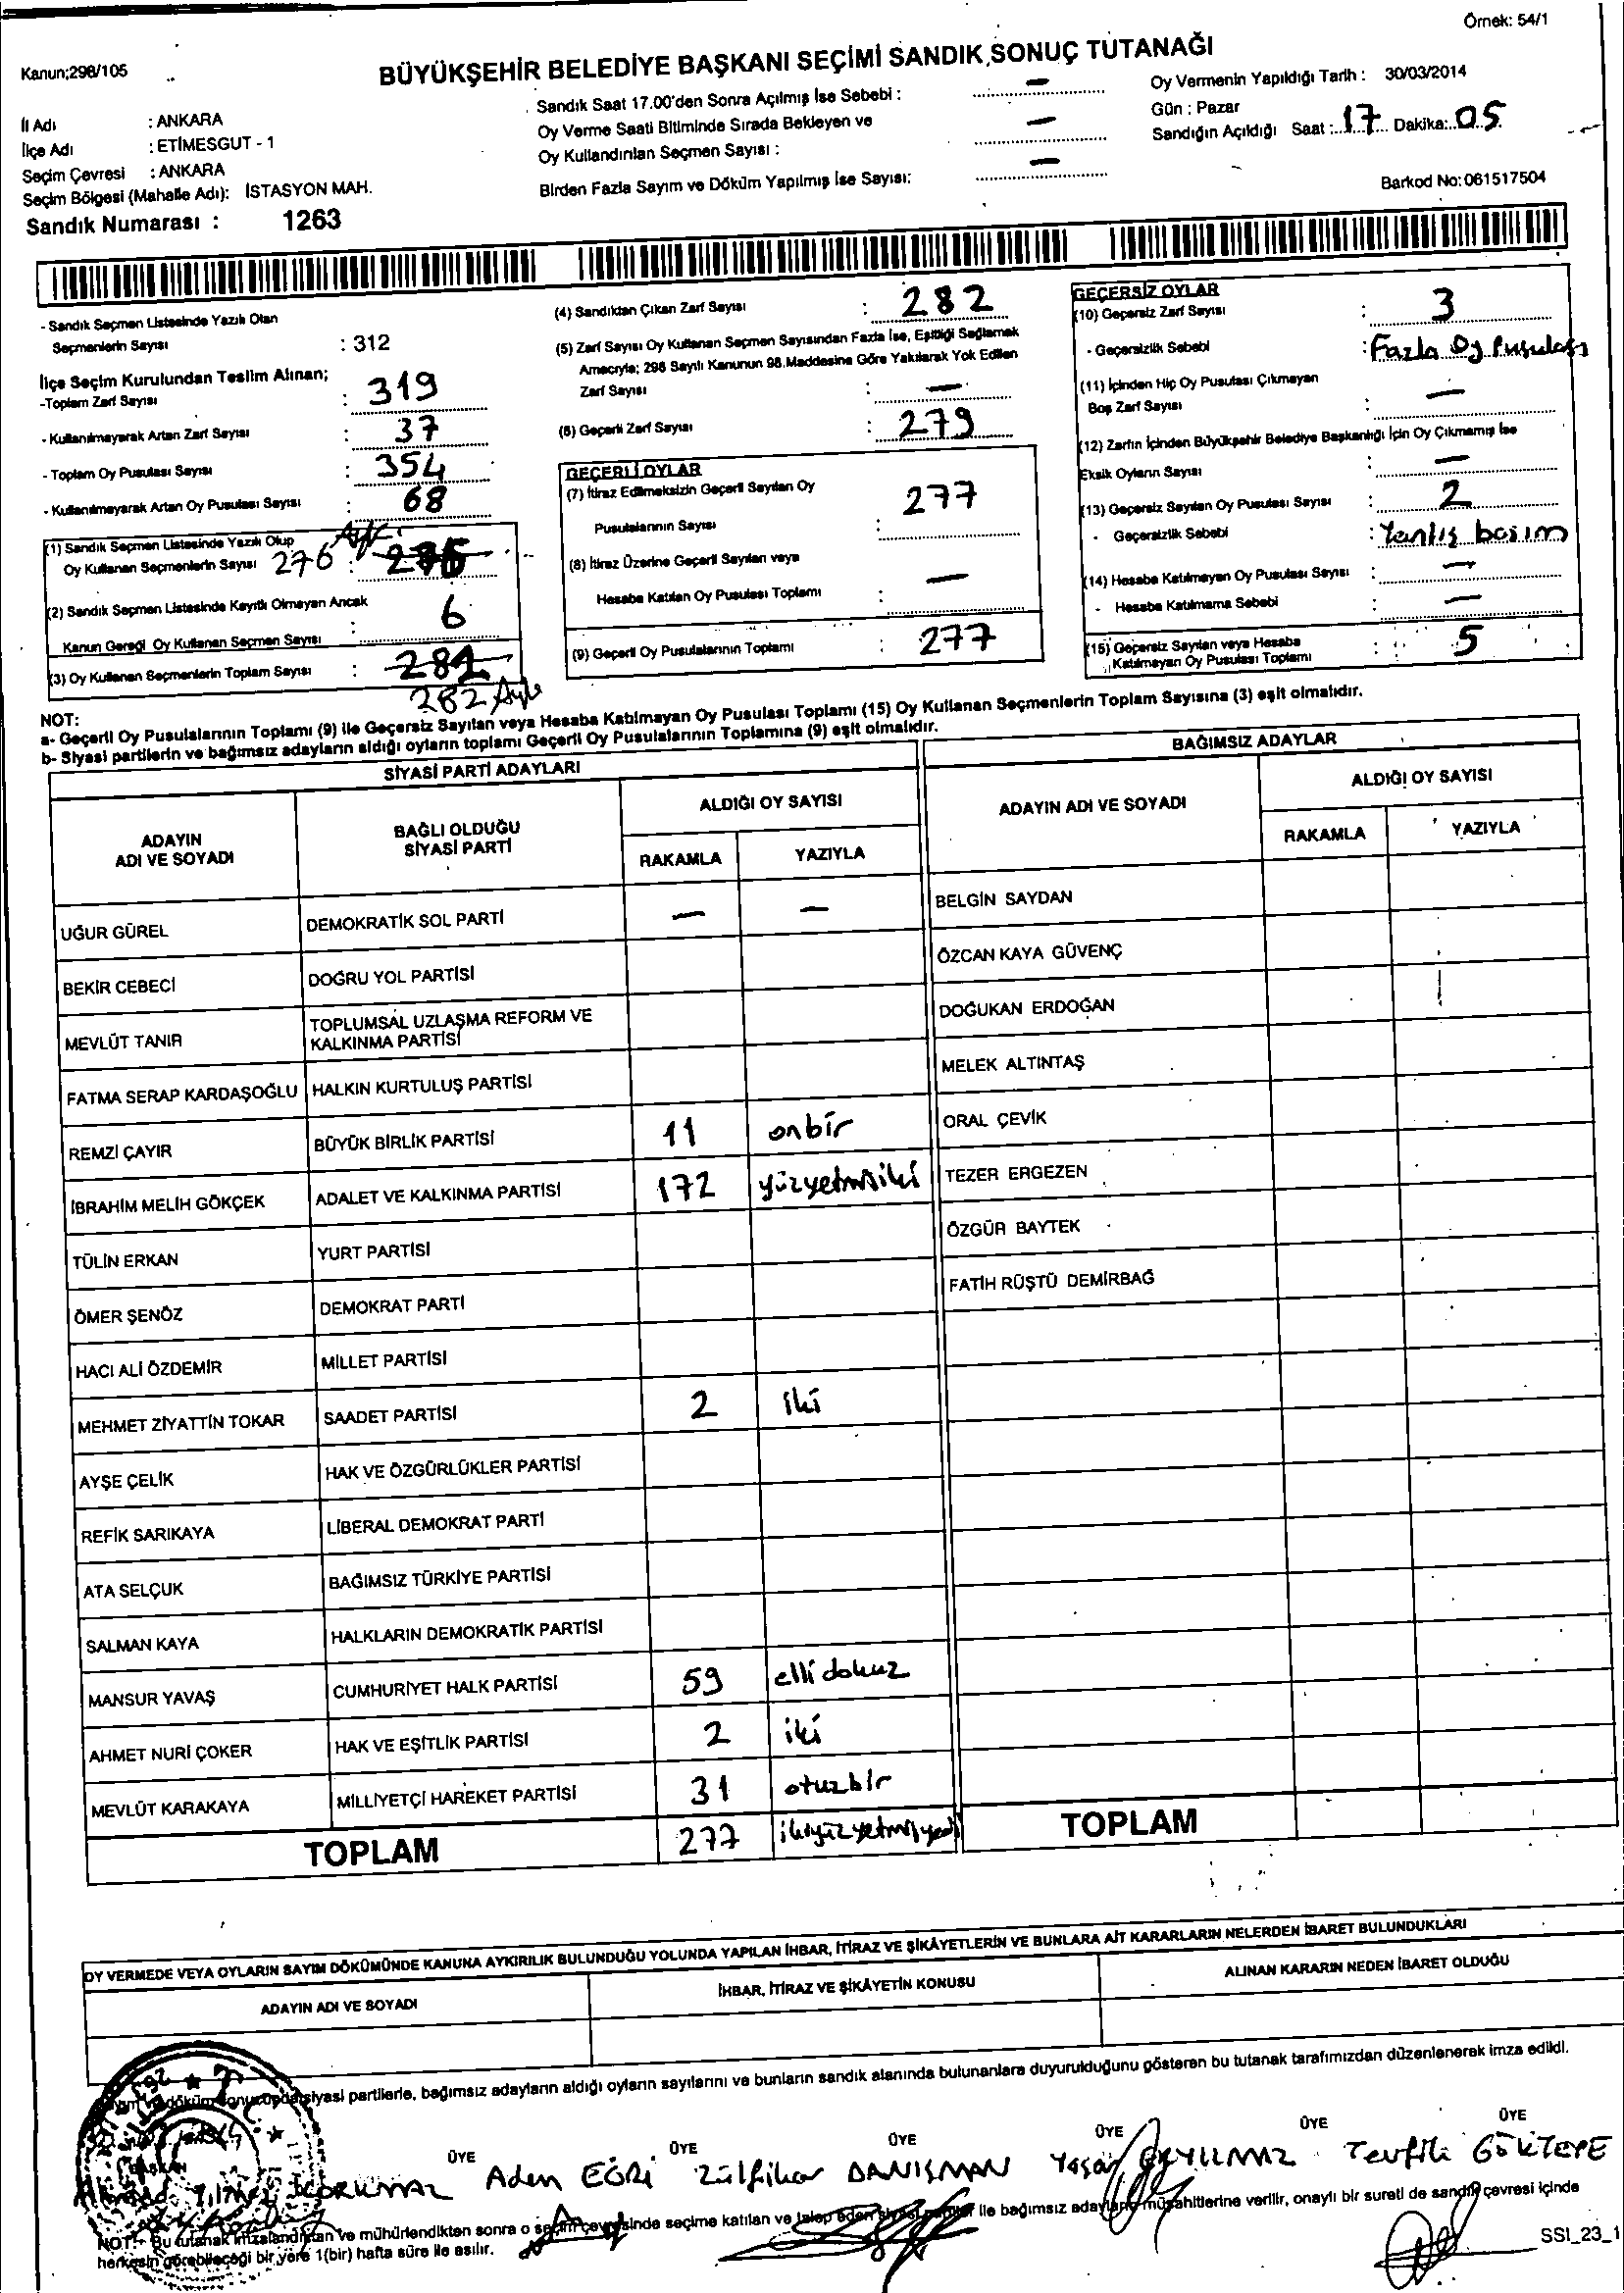 Örnek: 54/1
Kanun;298/105
BÜYÜKŞEHİR BELEDİYE BAŞKANI SEÇİMİ SANDIK SONUÇ TUTANAĞI
İl Adı : ANKARA
İlçe Adı : ETİMESGUT - 1
Seçim Çevresi : ANKARA
Seçim Bölgesi (Mahalle Adı): İSTASYON MAH.
Sandık Numarası : 1263
Sandık Saat 17.00'den Sonra Açılmış İse Sebebi : —
Oy Verme Saati Bitiminde Sırada Bekleyen ve
Oy Kullandırılan Seçmen Sayısı : —
Birden Fazla Sayım ve Döküm Yapılmış İse Sayısı: —
Oy Vermenin Yapıldığı Tarih : 30/03/2014
Gün : Pazar
Sandığın Açıldığı Saat : 17 Dakika: 05
Barkod No: 061517504
- Sandık Seçmen Listesinde Yazılı Olan
Seçmenlerin Sayısı : 312
İlçe Seçim Kurulundan Teslim Alınan;
-Toplam Zarf Sayısı : 319
- Kullanılmayarak Artan Zarf Sayısı : 37
- Toplam Oy Pusulası Sayısı : 354
- Kullanılmayarak Artan Oy Pusulası Sayısı : 68
(1) Sandık Seçmen Listesinde Yazılı Olup
Oy Kullanan Seçmenlerin Sayısı 276 :
(2) Sandık Seçmen Listesinde Kayıtlı Olmayan Ancak
Kanun Gereği Oy Kullanan Seçmen Sayısı : 6
(3) Oy Kullanan Seçmenlerin Toplam Sayısı :
282
(4) Sandıktan Çıkan Zarf Sayısı : 282
(5) Zarf Sayısı Oy Kullanan Seçmen Sayısından Fazla İse, Eşitliği Sağlamak
Amacıyla; 298 Sayılı Kanunun 98.Maddesine Göre Yakılarak Yok Edilen
Zarf Sayısı : —
(6) Geçerli Zarf Sayısı : 279
GEÇERLİ OYLAR
(7) İtiraz Edilmeksizin Geçerli Sayılan Oy
Pusulalarının Sayısı : 277
(8) İtiraz Üzerine Geçerli Sayılan veya
Hesaba Katılan Oy Pusulası Toplamı : —
(9) Geçerli Oy Pusulalarının Toplamı : 277
GEÇERSİZ OYLAR
(10) Geçersiz Zarf Sayısı : 3
- Geçersizlik Sebebi : Fazla Oy Pusulası
(11) İçinden Hiç Oy Pusulası Çıkmayan
Boş Zarf Sayısı : —
(12) Zarfın İçinden Büyükşehir Belediye Başkanlığı İçin Oy Çıkmamış İse
Eksik Oyların Sayısı : —
(13) Geçersiz Sayılan Oy Pusulası Sayısı : 2
- Geçersizlik Sebebi : Yanlış basım
(14) Hesaba Katılmayan Oy Pusulası Sayısı : —
- Hesaba Katılmama Sebebi : —
(15) Geçersiz Sayılan veya Hesaba
Katılmayan Oy Pusulası Toplamı : 5
NOT:
a- Geçerli Oy Pusulalarının Toplamı (9) ile Geçersiz Sayılan veya Hesaba Katılmayan Oy Pusulası Toplamı (15) Oy Kullanan Seçmenlerin Toplam Sayısına (3) eşit olmalıdır.
b- Siyasi partilerin ve bağımsız adayların aldığı oyların toplamı Geçerli Oy Pusulalarının Toplamına (9) eşit olmalıdır.
SİYASİ PARTİ ADAYLARI
ADAYIN ADI VE SOYADI
BAĞLI OLDUĞU SİYASİ PARTİ
ALDIĞI OY SAYISI
RAKAMLA YAZIYLA
UĞUR GÜREL DEMOKRATİK SOL PARTİ — —
BEKİR CEBECİ DOĞRU YOL PARTİSİ
MEVLÜT TANIR TOPLUMSAL UZLAŞMA REFORM VE KALKINMA PARTİSİ
FATMA SERAP KARDAŞOĞLU HALKIN KURTULUŞ PARTİSİ
REMZİ ÇAYIR BÜYÜK BİRLİK PARTİSİ 11 onbir
İBRAHİM MELİH GÖKÇEK ADALET VE KALKINMA PARTİSİ 172 yüzyetmişiki
TÜLİN ERKAN YURT PARTİSİ
ÖMER ŞENÖZ DEMOKRAT PARTİ
HACI ALİ ÖZDEMİR MİLLET PARTİSİ
MEHMET ZİYATTİN TOKAR SAADET PARTİSİ 2 iki
AYŞE ÇELİK HAK VE ÖZGÜRLÜKLER PARTİSİ
REFİK SARIKAYA LİBERAL DEMOKRAT PARTİ
ATA SELÇUK BAĞIMSIZ TÜRKİYE PARTİSİ
SALMAN KAYA HALKLARIN DEMOKRATİK PARTİSİ
MANSUR YAVAŞ CUMHURİYET HALK PARTİSİ 59 elli dokuz
AHMET NURİ ÇOKER HAK VE EŞİTLİK PARTİSİ 2 iki
MEVLÜT KARAKAYA MİLLİYETÇİ HAREKET PARTİSİ 31 otuzbir
TOPLAM 277 ikiyüzyetmişyedi
BAĞIMSIZ ADAYLAR
ADAYIN ADI VE SOYADI
ALDIĞI OY SAYISI
RAKAMLA YAZIYLA
BELGİN SAYDAN
ÖZCAN KAYA GÜVENÇ
DOĞUKAN ERDOĞAN
MELEK ALTINTAŞ
ORAL ÇEVİK
TEZER ERGEZEN
ÖZGÜR BAYTEK
FATİH RÜŞTÜ DEMİRBAĞ
TOPLAM
OY VERMEDE VEYA OYLARIN SAYIM DÖKÜMÜNDE KANUNA AYKIRILIK BULUNDUĞU YOLUNDA YAPILAN İHBAR, İTİRAZ VE ŞİKÂYETLERİN VE BUNLARA AİT KARARLARIN NELERDEN İBARET BULUNDUKLARI
ADAYIN ADI VE SOYADI
İHBAR, İTİRAZ VE ŞİKÂYETİN KONUSU
ALINAN KARARIN NEDEN İBARET OLDUĞU
siyasi partilerle, bağımsız adayların aldığı oyların sayılarını ve bunların sandık alanında bulunanlara duyurulduğunu gösteren bu tutanak tarafımızdan düzenlenerek imza edildi.
ÜYE ÜYE ÜYE ÜYE ÜYE ÜYE
KORKMAZ Adem EĞRİ Zülfikar DANIŞMAN Yaşar Tevfik GÖKTEPE
NOT:- Bu tutanak imzalandıktan ve mühürlendikten sonra o seçim çevresinde seçime katılan ve talep eden siyasi partiler ile bağımsız adayların müşahitlerine verilir, onaylı bir sureti de sandık çevresi içinde
herkesin görebileceği bir yere 1(bir) hafta süre ile asılır.
SSI_23_1